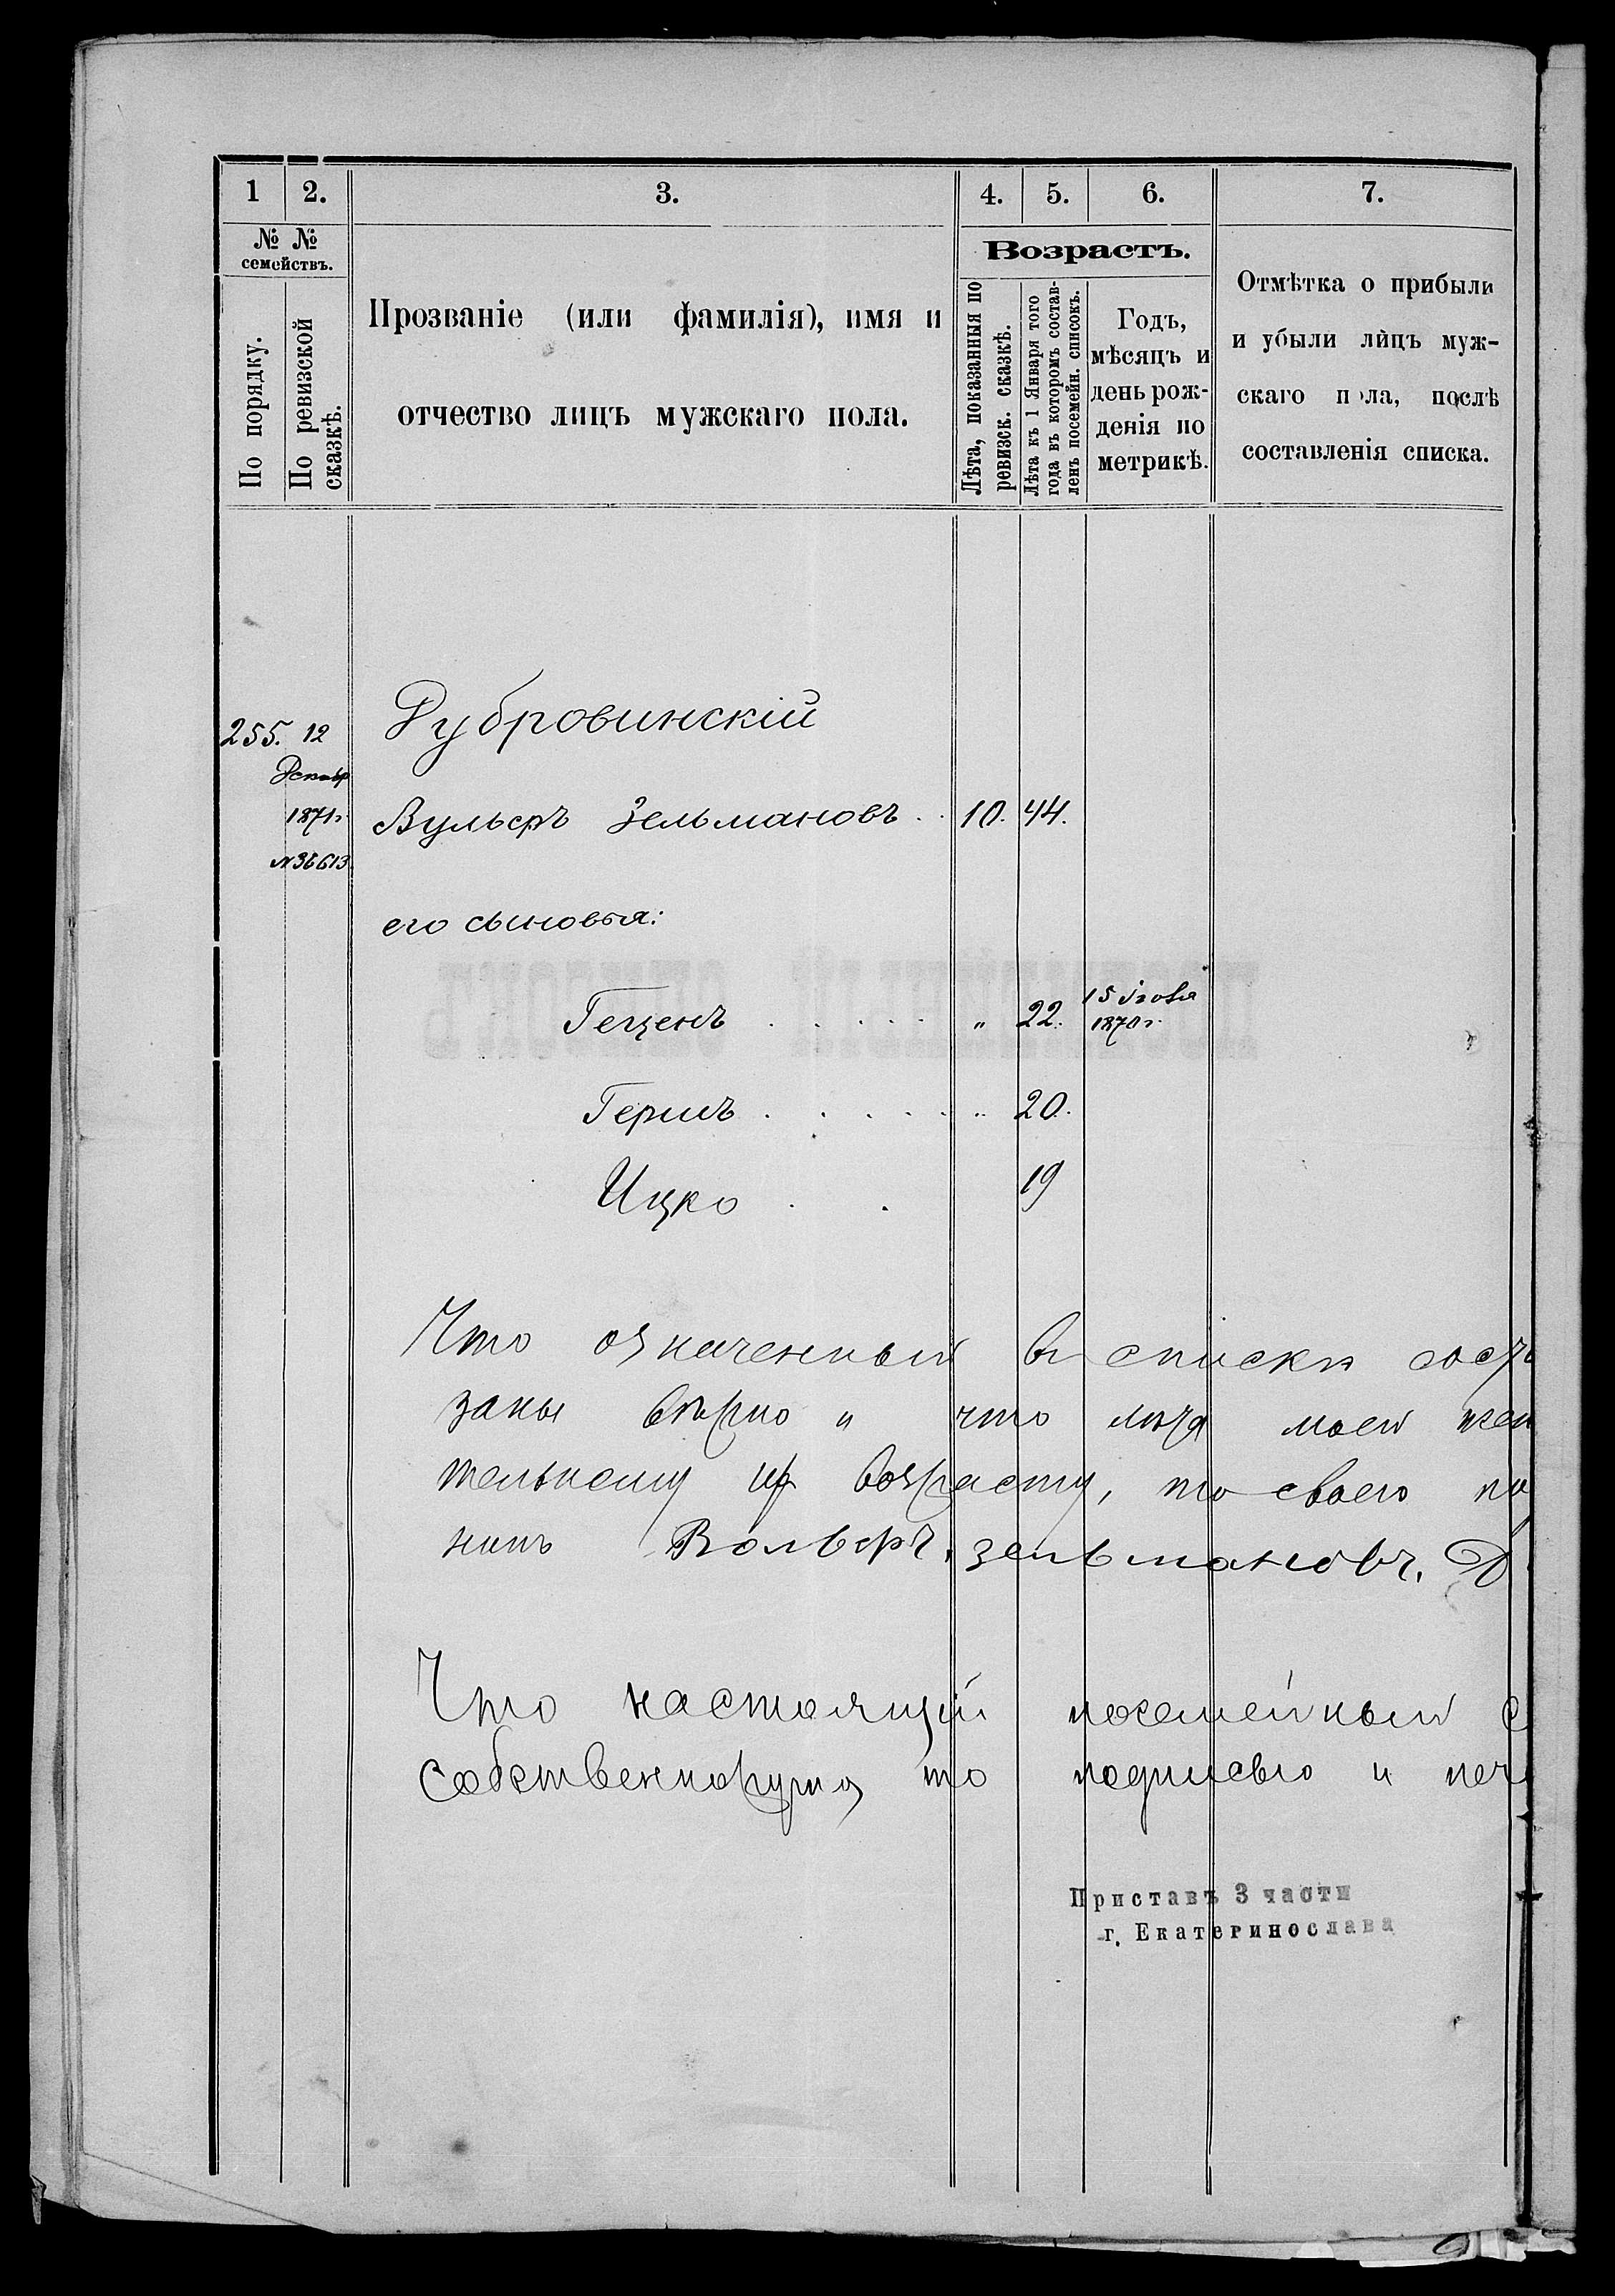 1 2. 3. 4. 5. 6. 7.
№ №
семействъ.
По порядку.
По ревизской
сказкѣ.
Прозваніе (или фамилія), имя и
отчество лицъ мужскаго пола.
Возрастъ.
Лѣта, показанныя по
ревизск. сказкѣ.
Лѣта къ 1 Января того
года въ которомъ состав-
ленъ посемейн. списокъ.
Годъ,
мѣсяцъ и
день рож-
денія по
метрикѣ.
Отмѣтка о прибыли
и убыли лицъ муж-
скаго пола, послѣ
составленія списка.
255. 12 Дубровинскій
1871г. Вульфъ Зельмановъ . . 10. 44.
№36613.
его сыновья:
Геценъ . . . . . " 22. 15 Іюля
1870г.
Гершъ . . . . . " 20.
Ицко . . 19
Что означенный въ списки сост
заны вѣрно и что лѣта моей жен
тельному их возрасту, то своею по
нинъ Вольфъ, зельмановъ. Д
Что настоящій посемейный с
собственноручно то подписью и печ
Приставъ 3 части
г. Екатеринослава